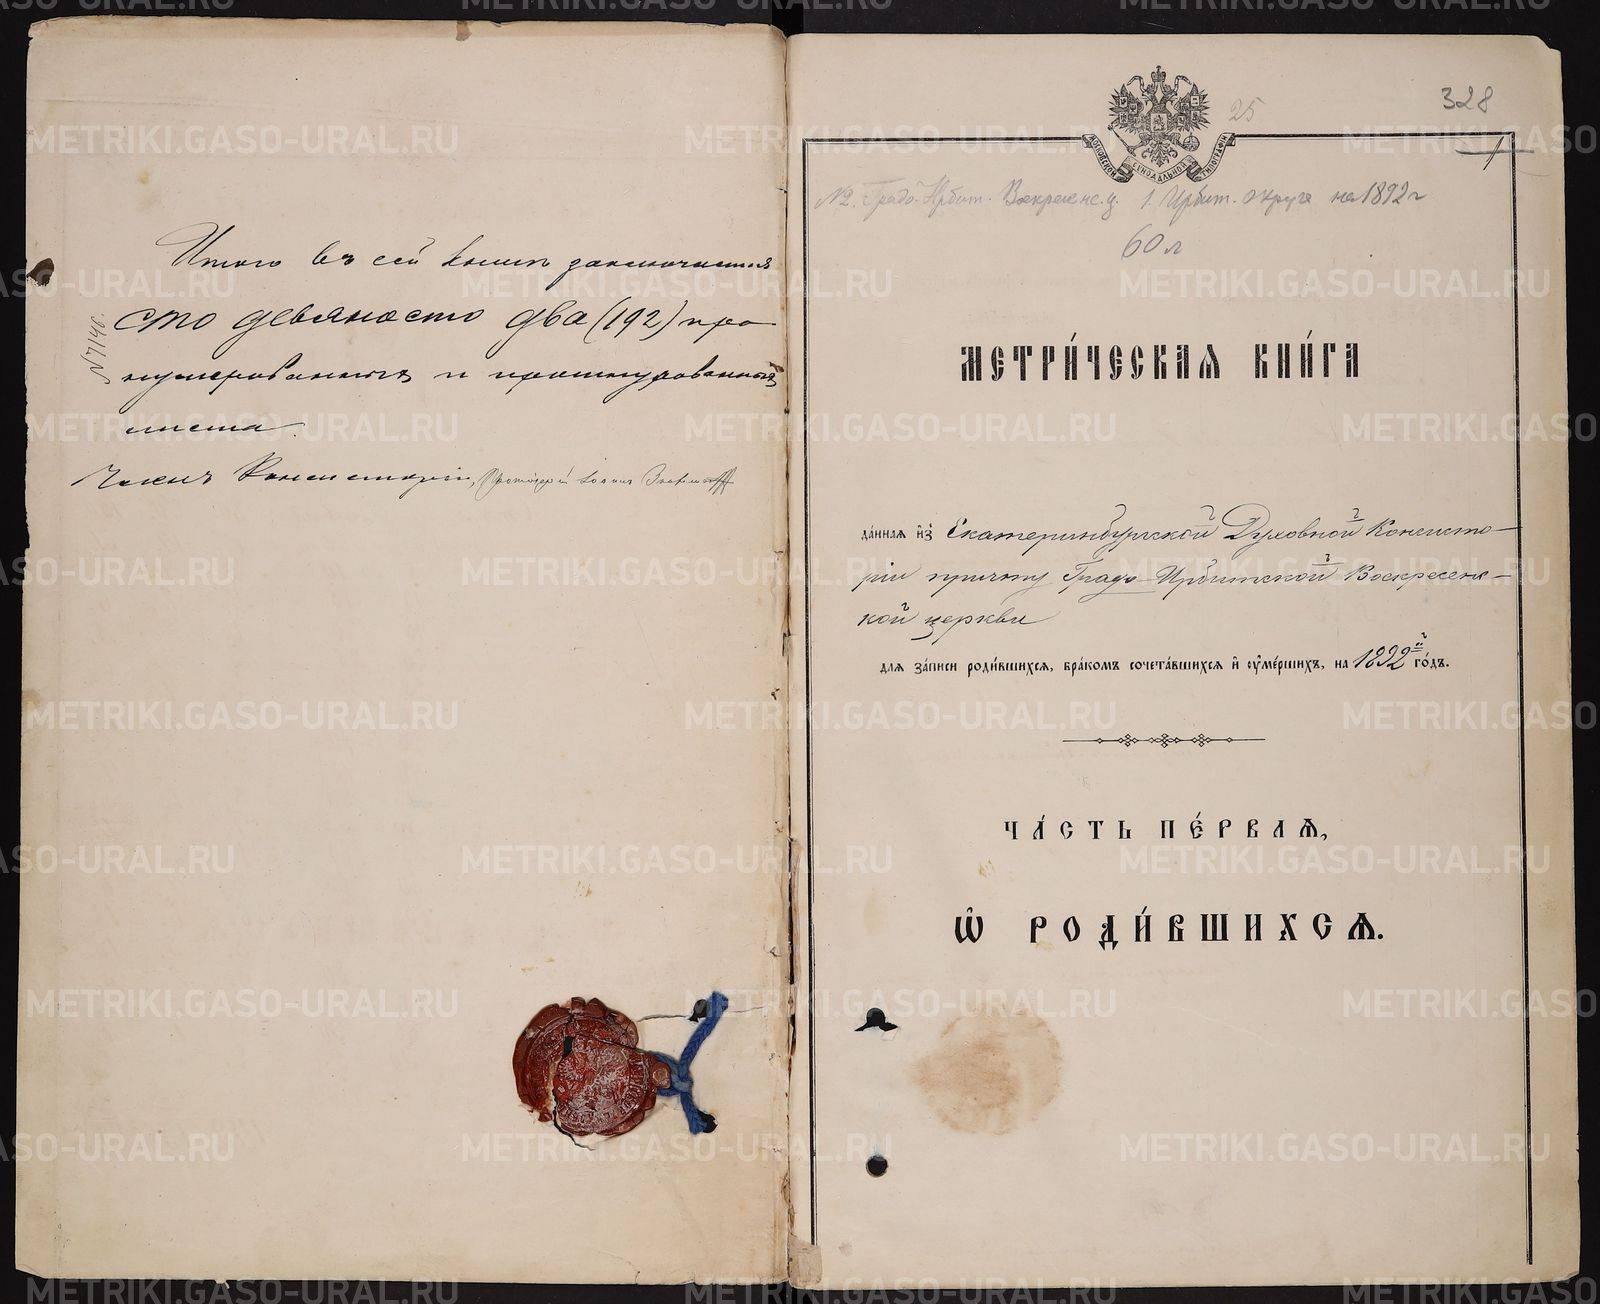 Итого въ сей книгѣ заключается
сто девяносто два (192) про
нумерованныхъ и прошнурованныхъ
листа.
Членъ Консисторіи, Протоіерей Іоаннъ
№ 7146.
328
25
1
МОСКОВСКОЙ СѴНОДАЛЬНОЙ ТИПОГРАФІИ
№2. Градо-Ирбит. Воскресенс. ц. 1. Ирбит. округа на 1892 г
60 л
МЕТРИ́ЧЕСКАѦ КНИ́ГА
да́ннаѧ и҆з̾ Екатеринбургской Духовной Консисто-
ріи причту Градо-Ирбитской Воскресенс-
кой церкви
длѧ за́писи роди́вшихсѧ, бра́комъ сочета́вшихсѧ и҆ ᲂу҆ме́ршихъ, на 1892й го́дъ.
ЧА́СТЬ ПЕ́РВАѦ,
Ѡ҆ РОДИ́ВШИХСѦ.
METRIKI.GASO-URAL.RU